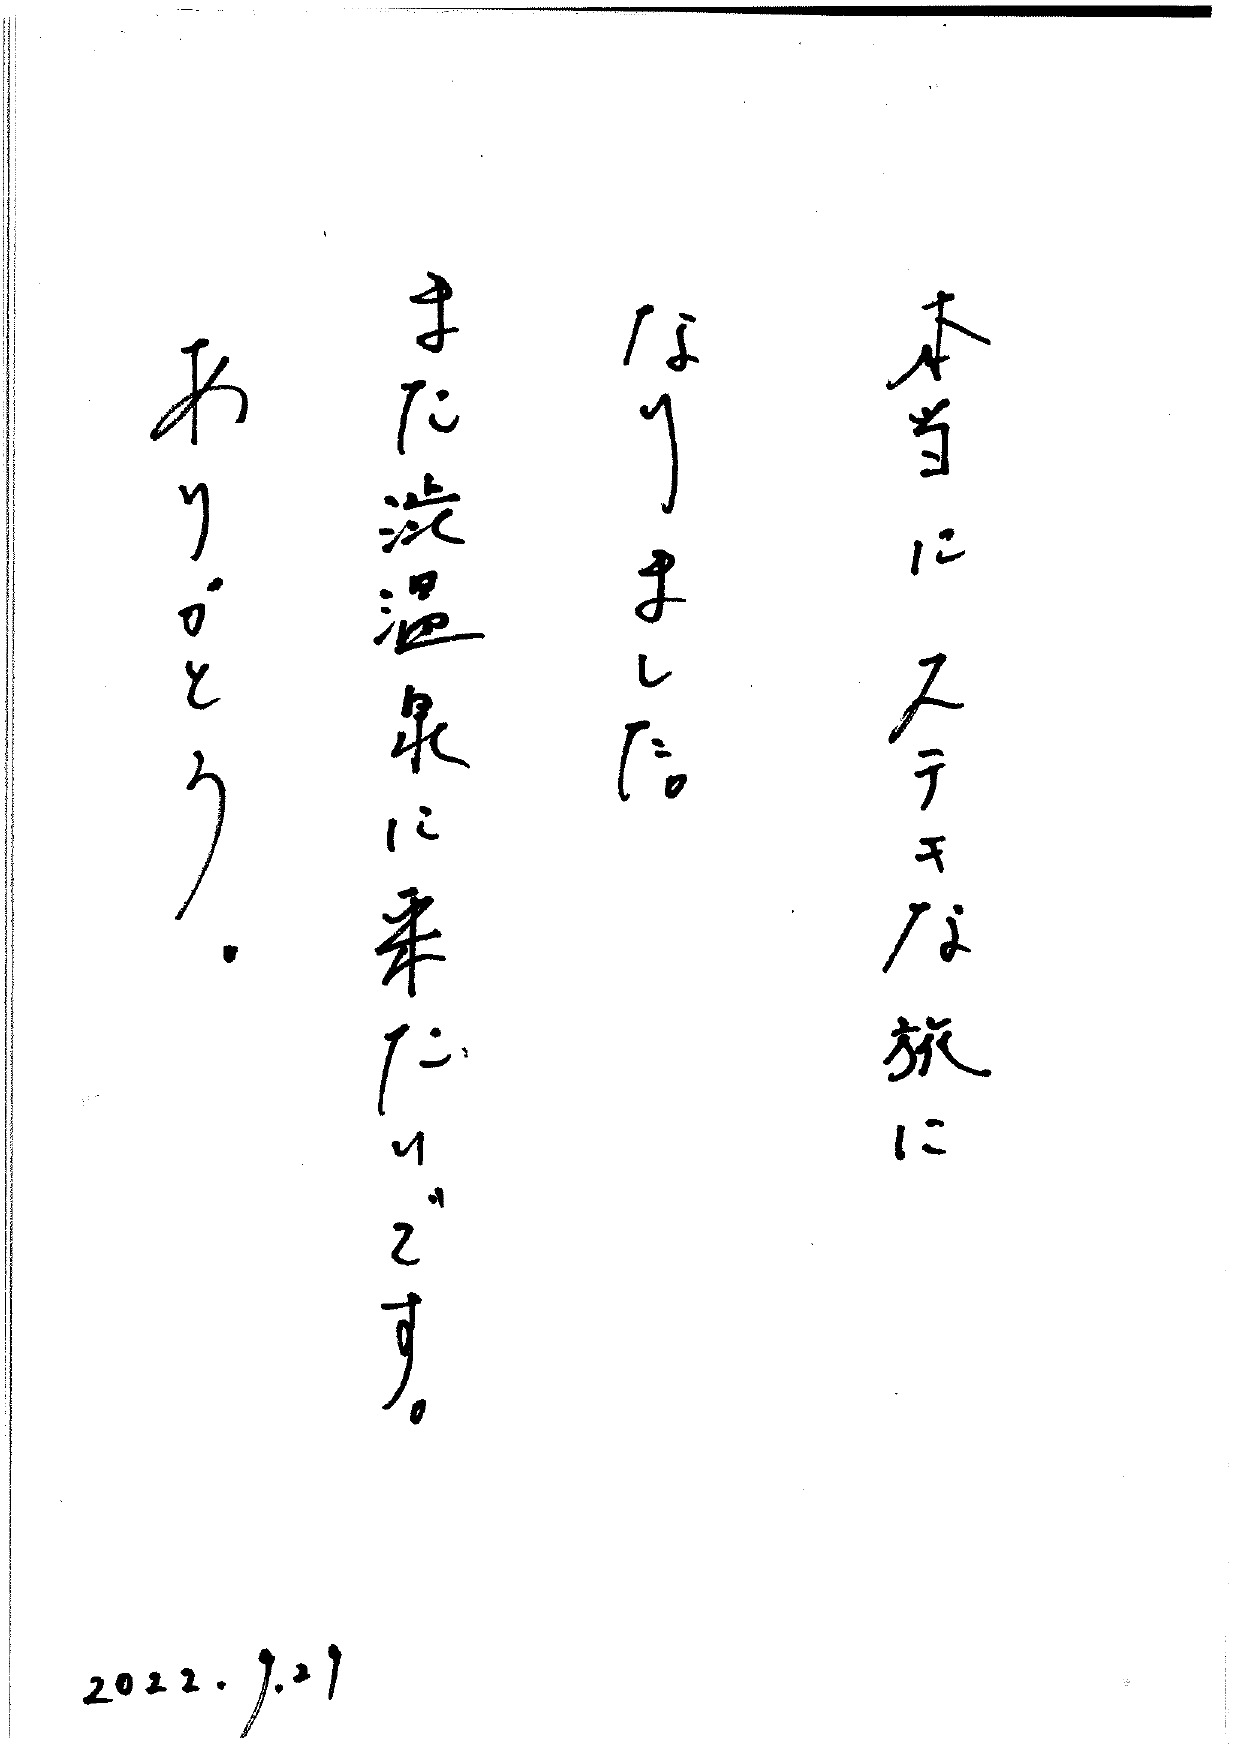 本当にステキな旅に
なりました。
また渋温泉に来たいです。
ありがとう.
2022.9.29